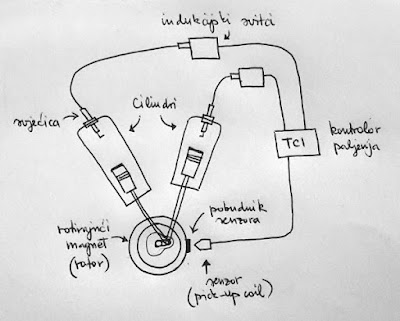 indukcijski svitci
svjećica
Cilindri
TCI
kontrolor
paljenja
rotirajući
magnet
(rotor)
pobudnik
senzora
senzor
(pick-up coil)